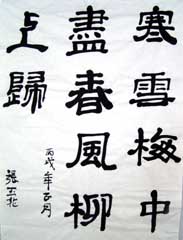 寒雪梅中
盡春風柳
上歸
丙戌年月
張